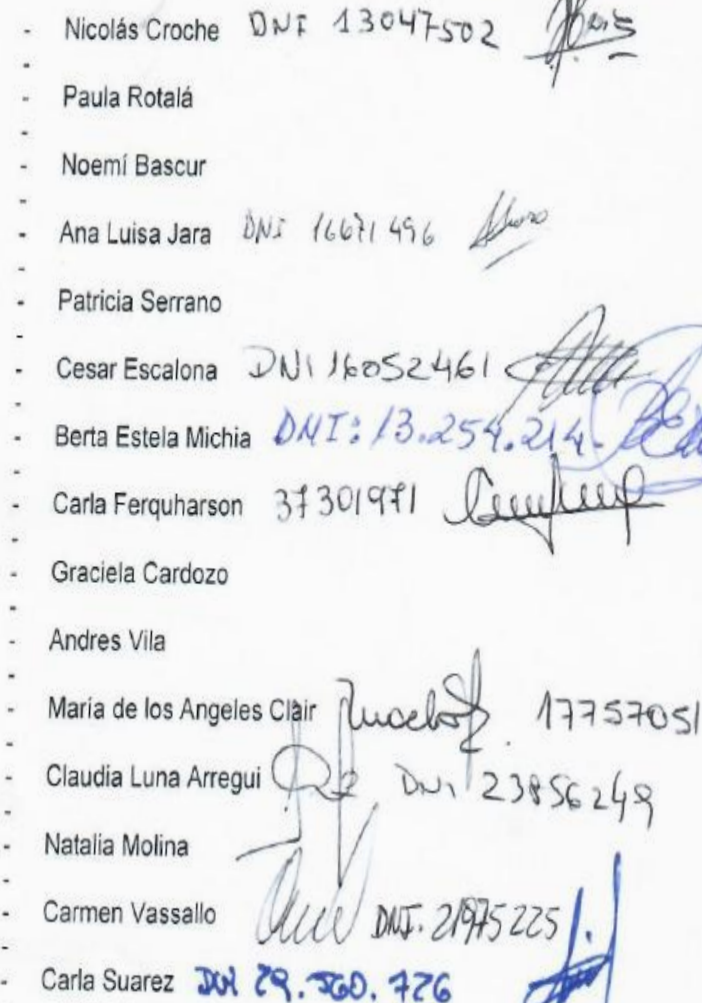 - Nicolás Croche DNI 13047502
- Paula Rotalá
- Noemí Bascur
- Ana Luisa Jara DNI 16671496
- Patricia Serrano
- Cesar Escalona DNI 16052461
- Berta Estela Michia DNI: 13.254.214.
- Carla Ferquharson 37301971
- Graciela Cardozo
- Andres Vila
- María de los Angeles Clair 17757051
- Claudia Luna Arregui DNI 23856249
- Natalia Molina
- Carmen Vassallo DNI. 21975225
- Carla Suarez DNI 29.560.726